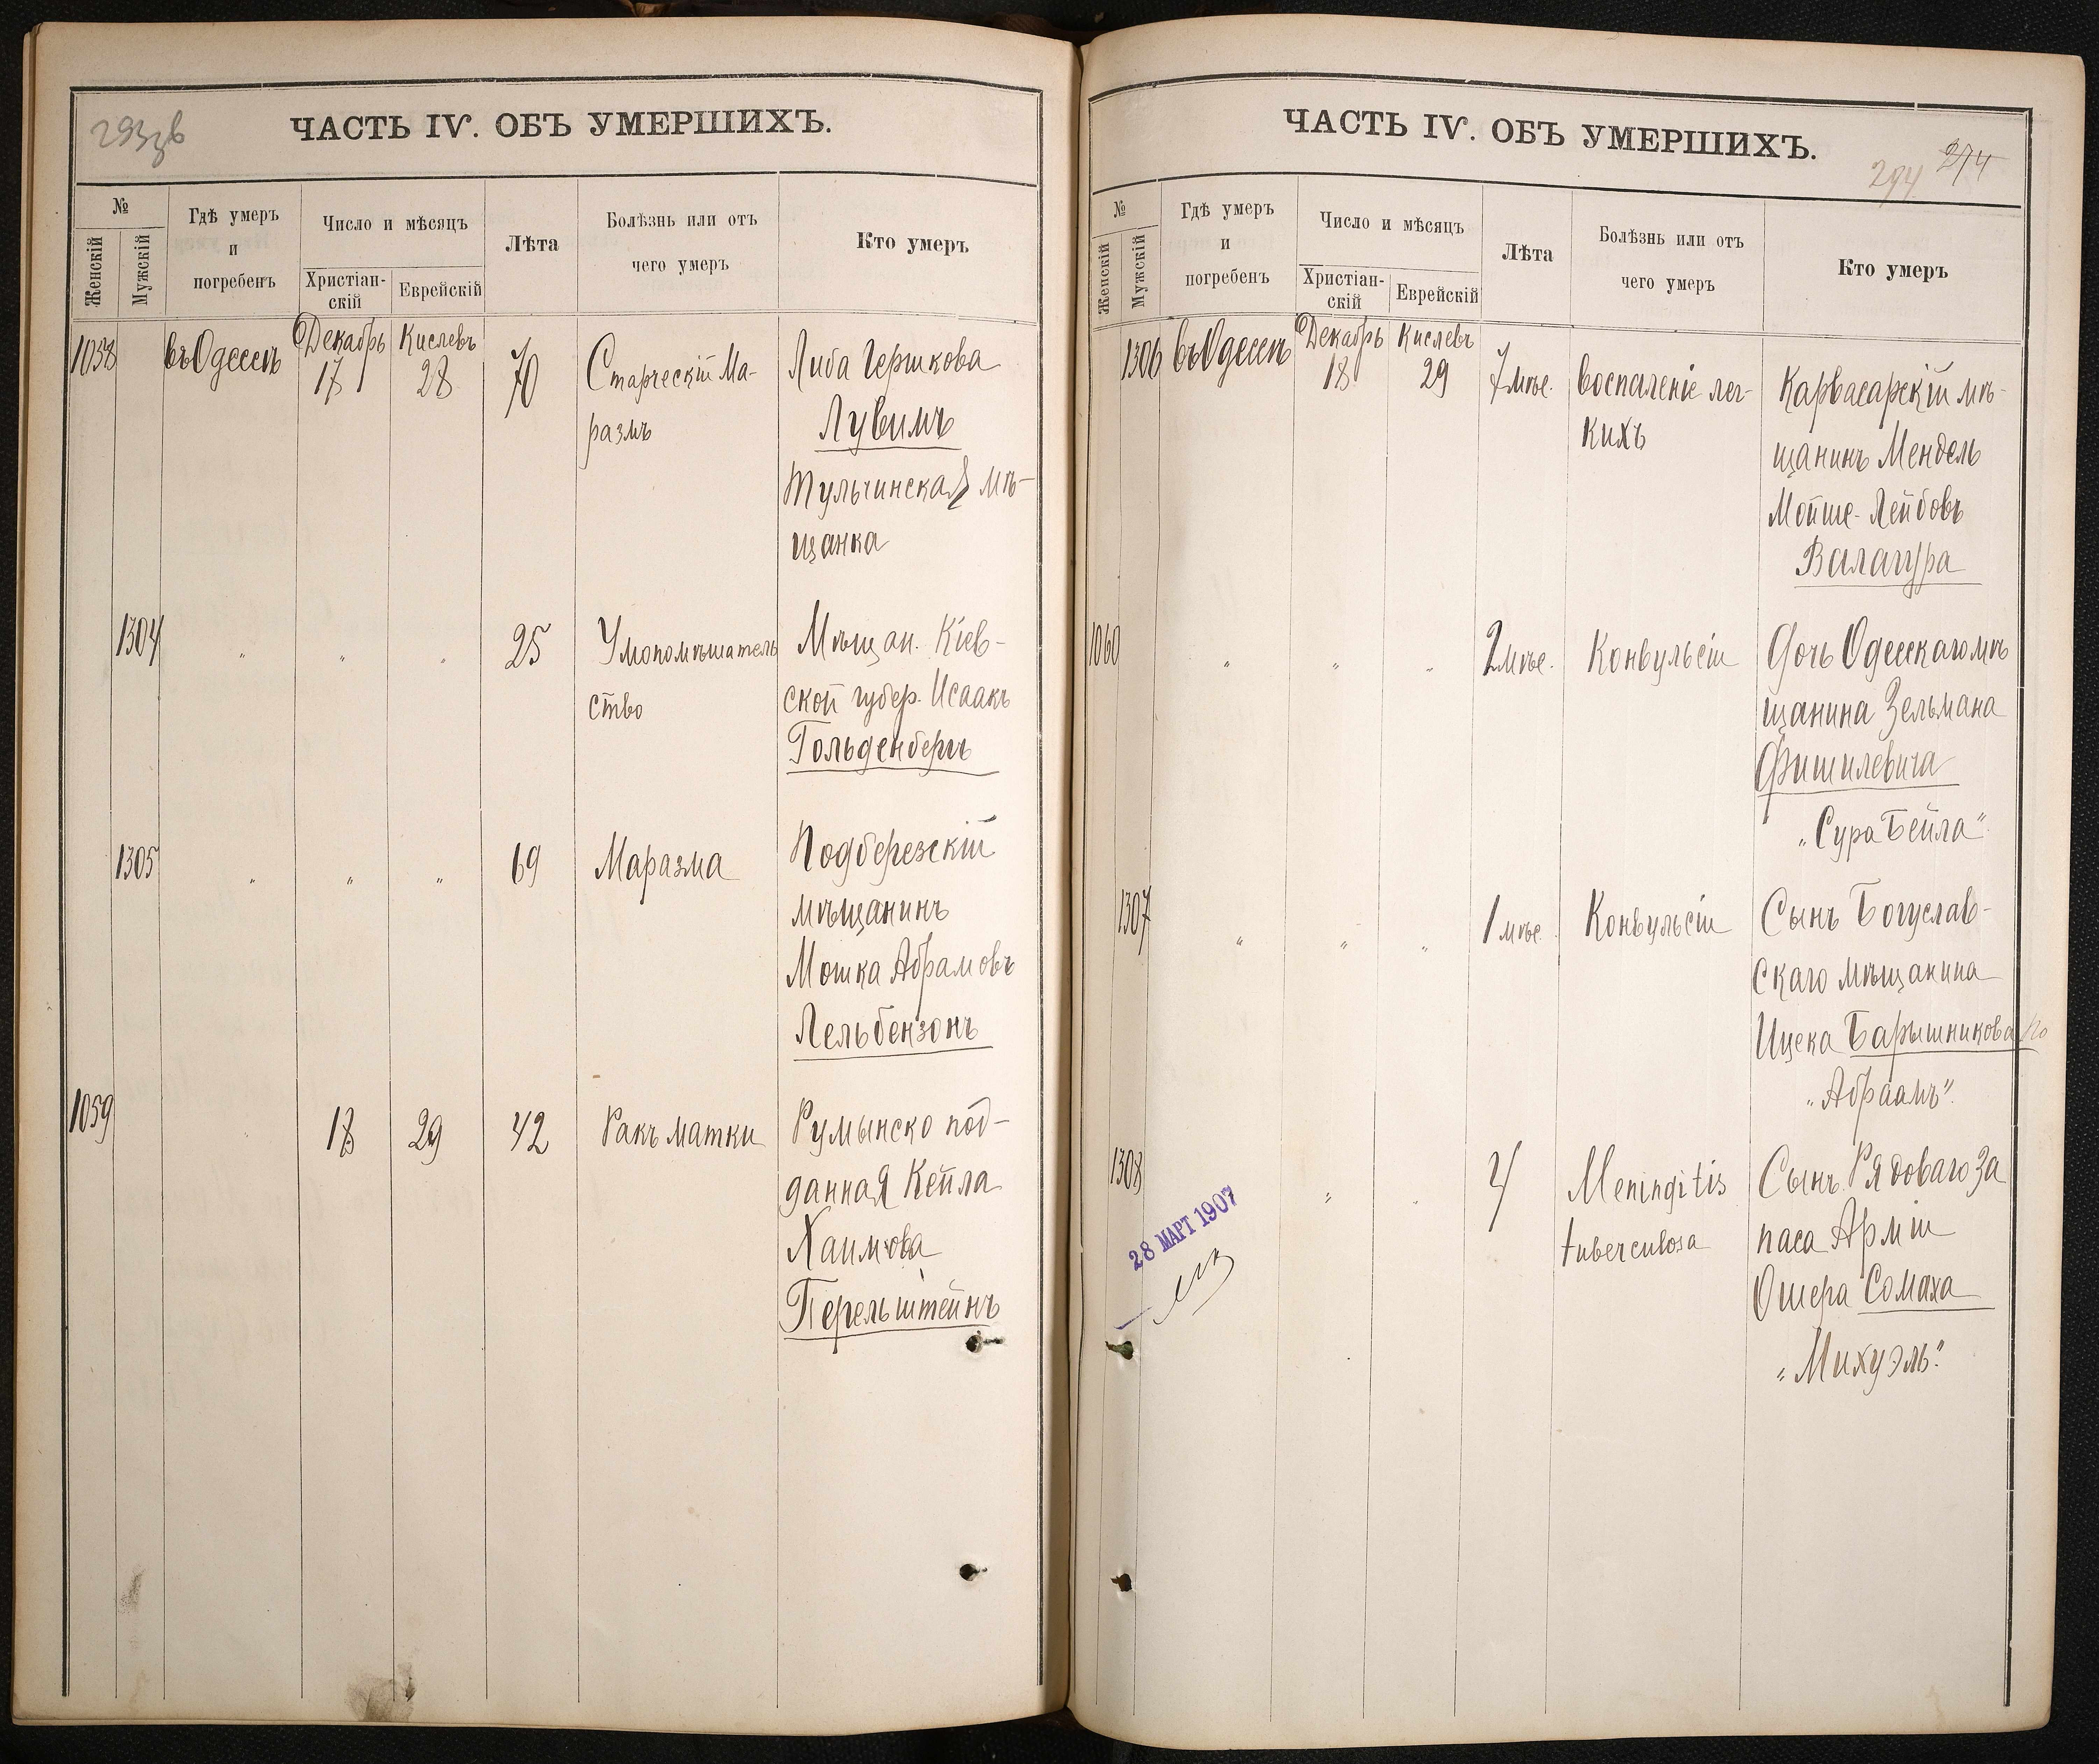 293зв
ЧАСТЬ IV. ОБЪ УМЕРШИХЪ.
№
Женскій
Мужскій
Гдѣ умеръ
и
погребенъ
Число и мѣсяцъ
Христіан-
скій
Еврейскій
Лѣта
Болѣзнь или отъ
чего умеръ
Кто умеръ
1058 въ Одессѣ Декабрь 17 Кислевъ 28 70 Старческій Ма-
размъ
Либа Гершкова
Лувимъ
Тульчинская мѣ-
щанка
1304 " " " 25 Умопомѣшатель
ство
Мѣщан. Кіев-
ской губер. Исаакъ
Гольденбергъ
1305 " " " 69 Маразма
Подберезскій
мѣщанинъ
Мошка Абрамовъ
Лельбензонъ
1059 " 18 29 42 Ракъ матки
Румынско под-
данная Кейла
Хаимова
Перельштейнъ
ЧАСТЬ IV. ОБЪ УМЕРШИХЪ.
294 274
№
Женскій
Мужскій
Гдѣ умеръ
и
погребенъ
Число и мѣсяцъ
Христіан-
скій
Еврейскій
Лѣта
Болѣзнь или отъ
чего умеръ
Кто умеръ
1306 въ Одессѣ Декабрь 18 Кислевъ 29 7 мѣс. Воспаленіе лег-
кихъ
Карвасарскій мѣ-
щанинъ Мендель
Мойше-Лейбовъ
Валагура
1060 " " " 2 мѣс. Конвульсіи
Дочь Одесскаго мѣ
щанина Зельмана
Фишилевича
"Сура Бейла"
1307 " " " 1 мѣс. Конвульсіи
Сынъ Богуслав-
скаго мѣщанина
Ицека Барышникова
"Абраамъ".
1308 " " 4 Meningitis
tuberculosa
Сынъ Рядоваго За
паса Арміи
Ошера Сомаха
"Михуэль".
28 МАРТ 1907